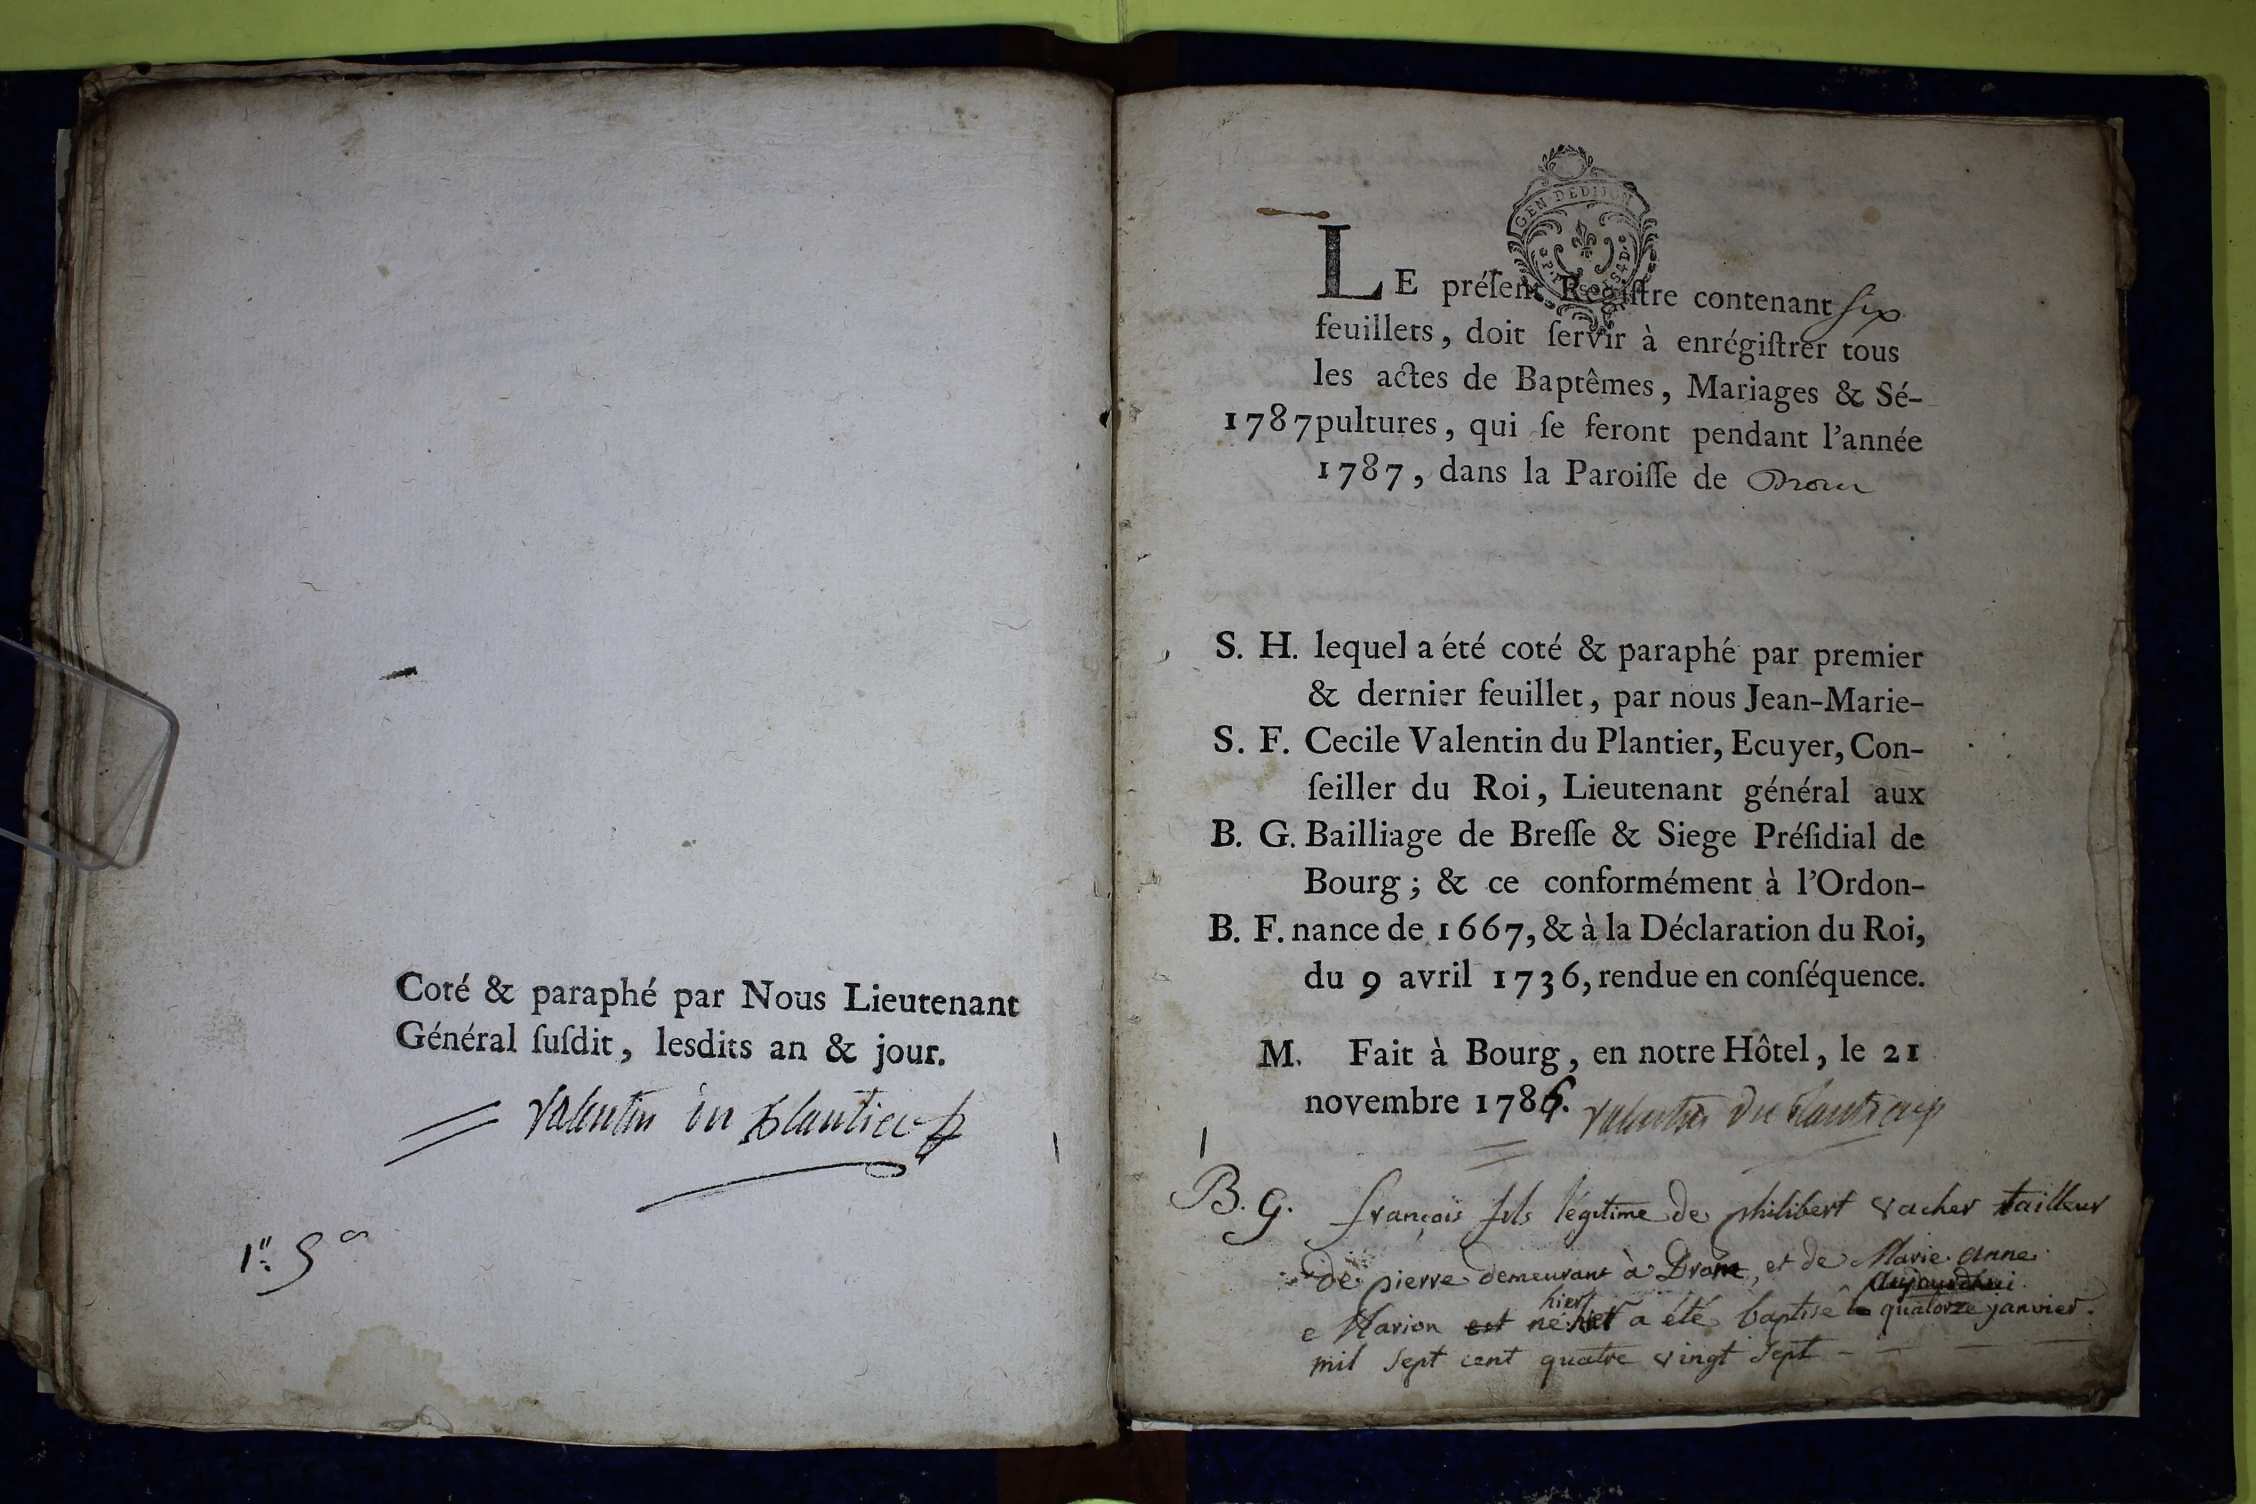 Coté & paraphé par Nous Lieutenant
Général ſuſdit, lesdits an & jour.
Valentin du Plantier
GEN DE DIJON
LE préſent Regiſtre contenant six
feuillets, doit ſervir à enrégiſtrer tous
les actes de Baptêmes, Mariages & Sé-
1787 pultures, qui ſe feront pendant l'année
1787, dans la Paroiſſe de Drom
S. H. lequel a été coté & paraphé par premier
& dernier feuillet, par nous Jean-Marie-
S. F. Cecile Valentin du Plantier, Ecuyer, Con-
ſeiller du Roi, Lieutenant général aux
B. G. Bailliage de Breſſe & Siege Préſidial de
Bourg ; & ce conformément à l'Ordon-
B. F. nance de 1667, & à la Déclaration du Roi,
du 9 avril 1736, rendue en conſéquence.
M. Fait à Bourg, en notre Hôtel, le 21
novembre 1786. Valentin du Plantier
1
B. G. françois fils légitime de philibert vacher tailleur
de pierre demeurant à Drom, et de Marie anne
aujourdhui
hier
e Marion est né et a été baptisé le quatorze janvier
mil sept cent quatre vingt sept